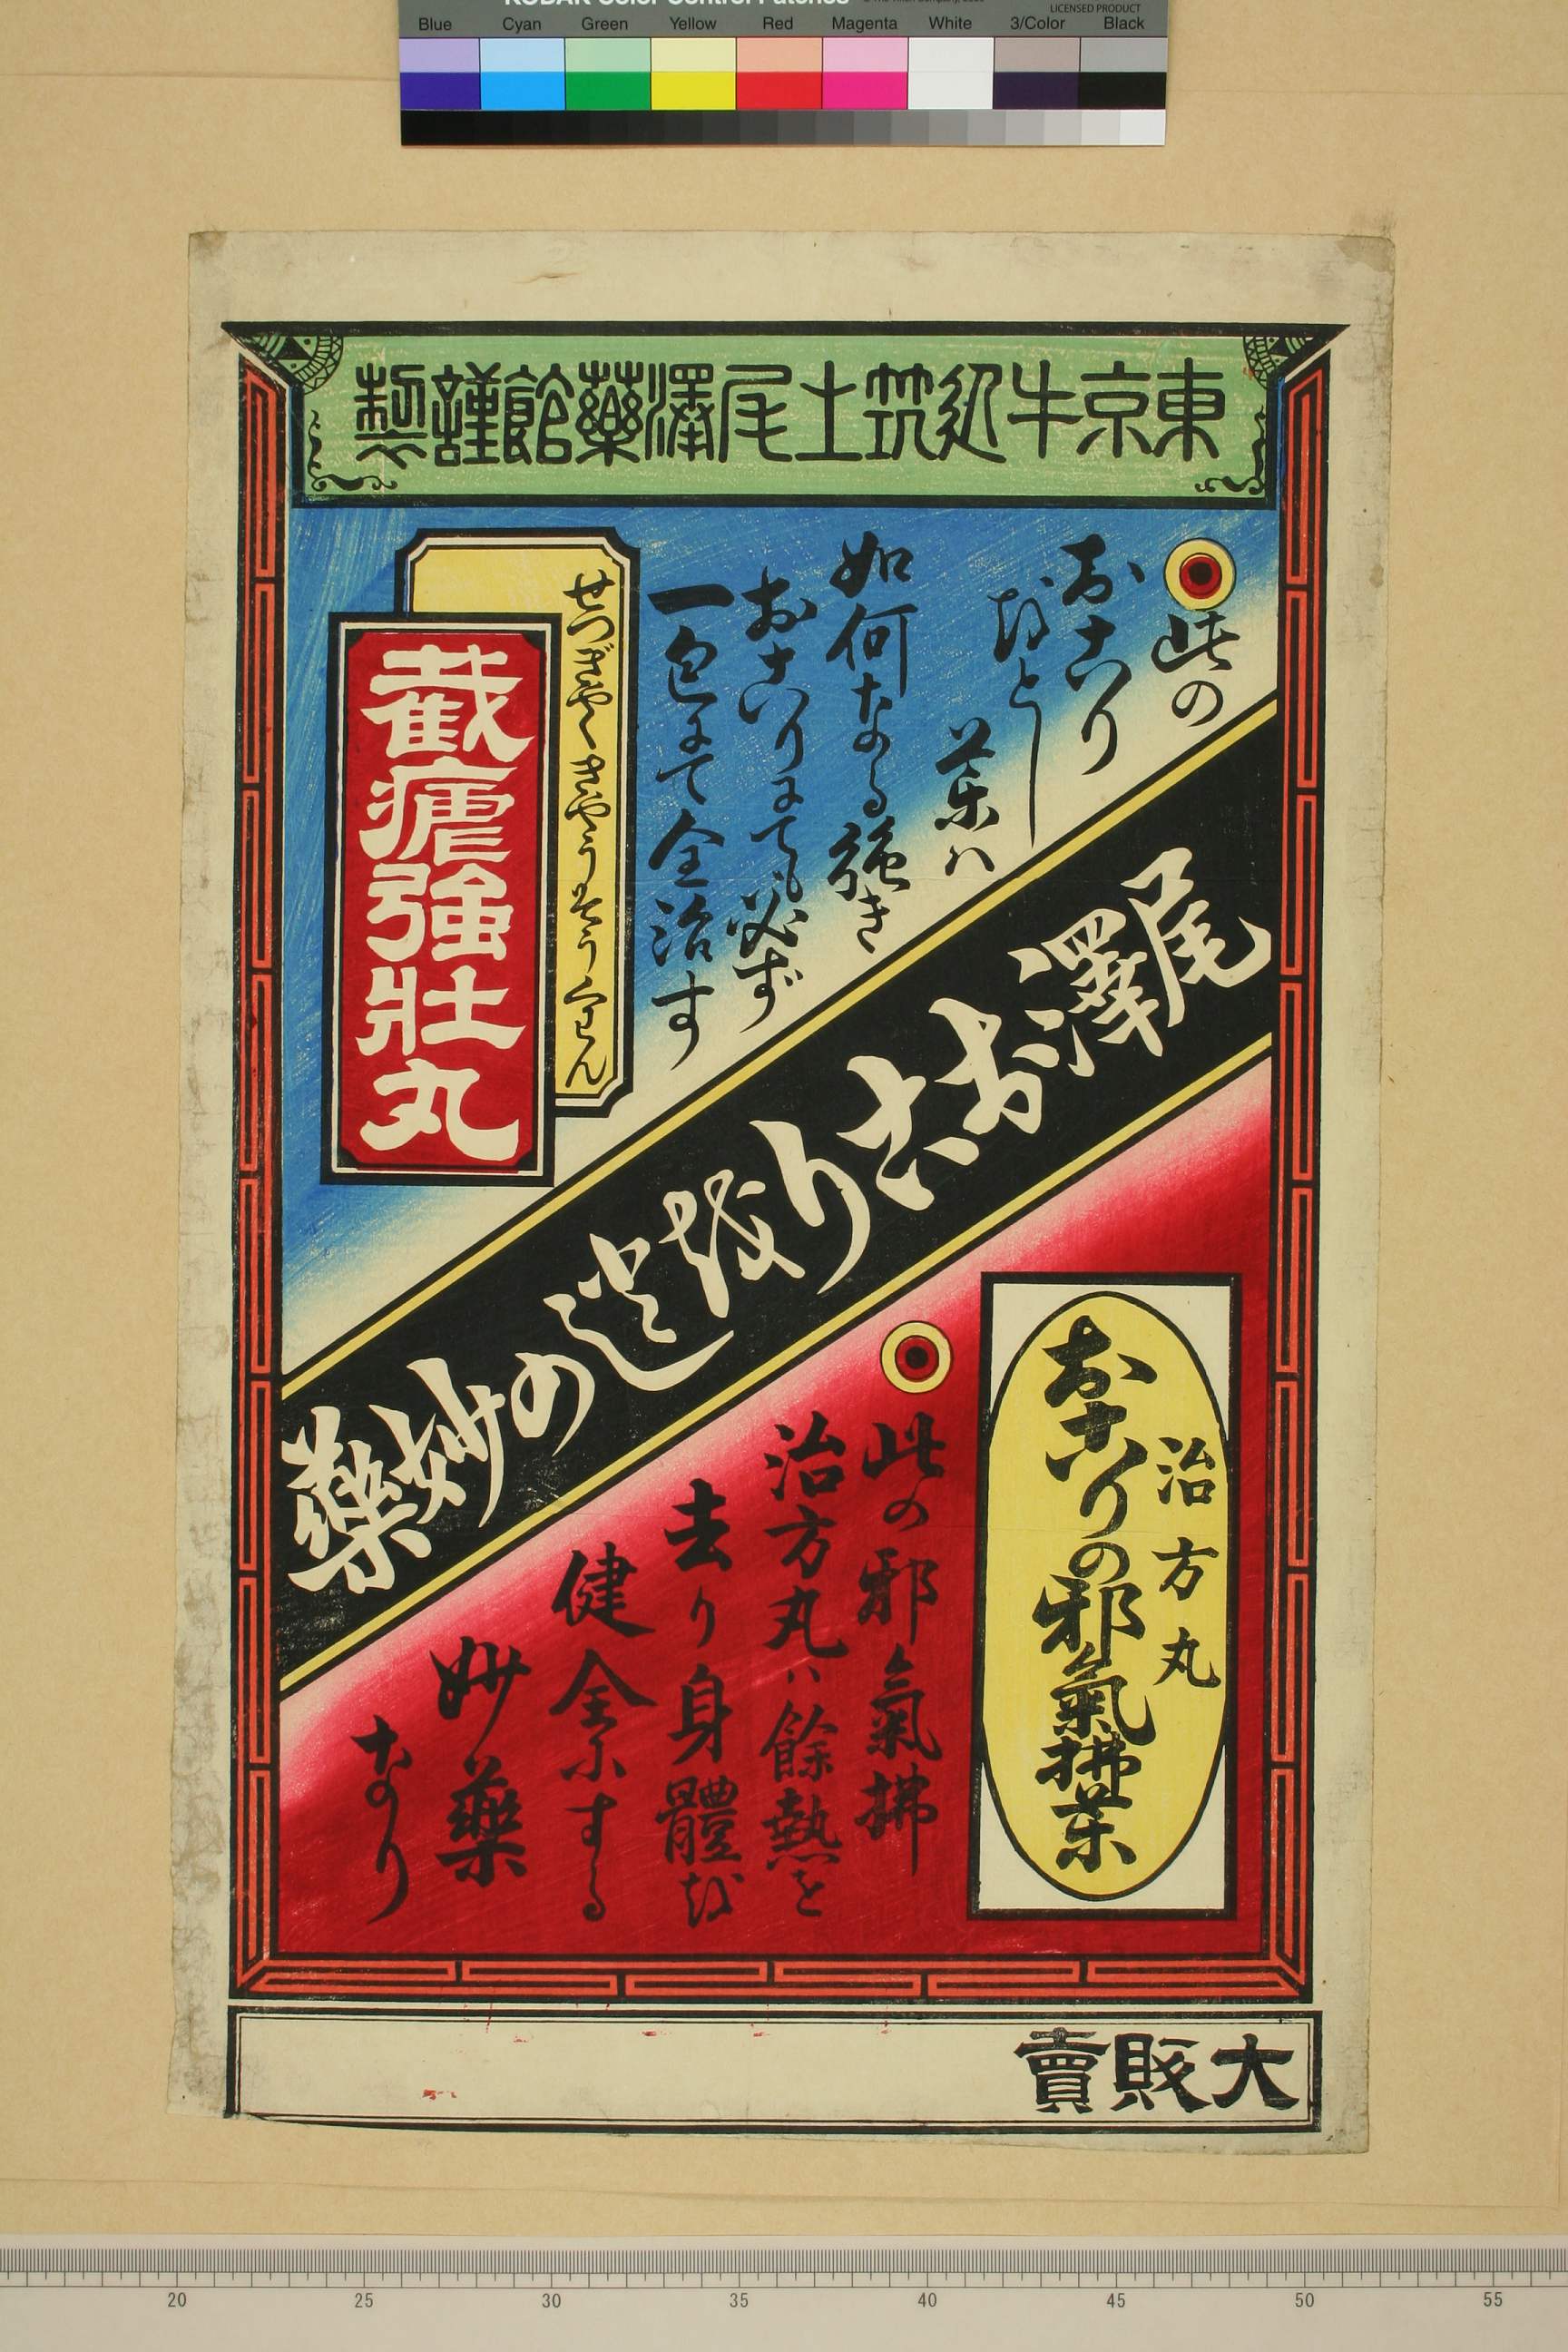 KODAK Color Control Patches
LICENSED PRODUCT
Blue Cyan Green Yellow Red Magenta White 3/Color Black
東京牛込筑土尾澤藥館謹製
此の
おこり
おとし
薬ハ
如何なる強き
おこりにても必ず
一包にて全治す
せつぎやくきやうさうぐわん
截瘧強壮丸
尾澤おこりおとしの妙藥
治方丸
おこりの邪氣拂薬
此の邪氣拂
治方丸ハ餘熱を
去り身體を
健全にする
妙藥
なり
大販賣
20 25 30 35 40 45 50 55